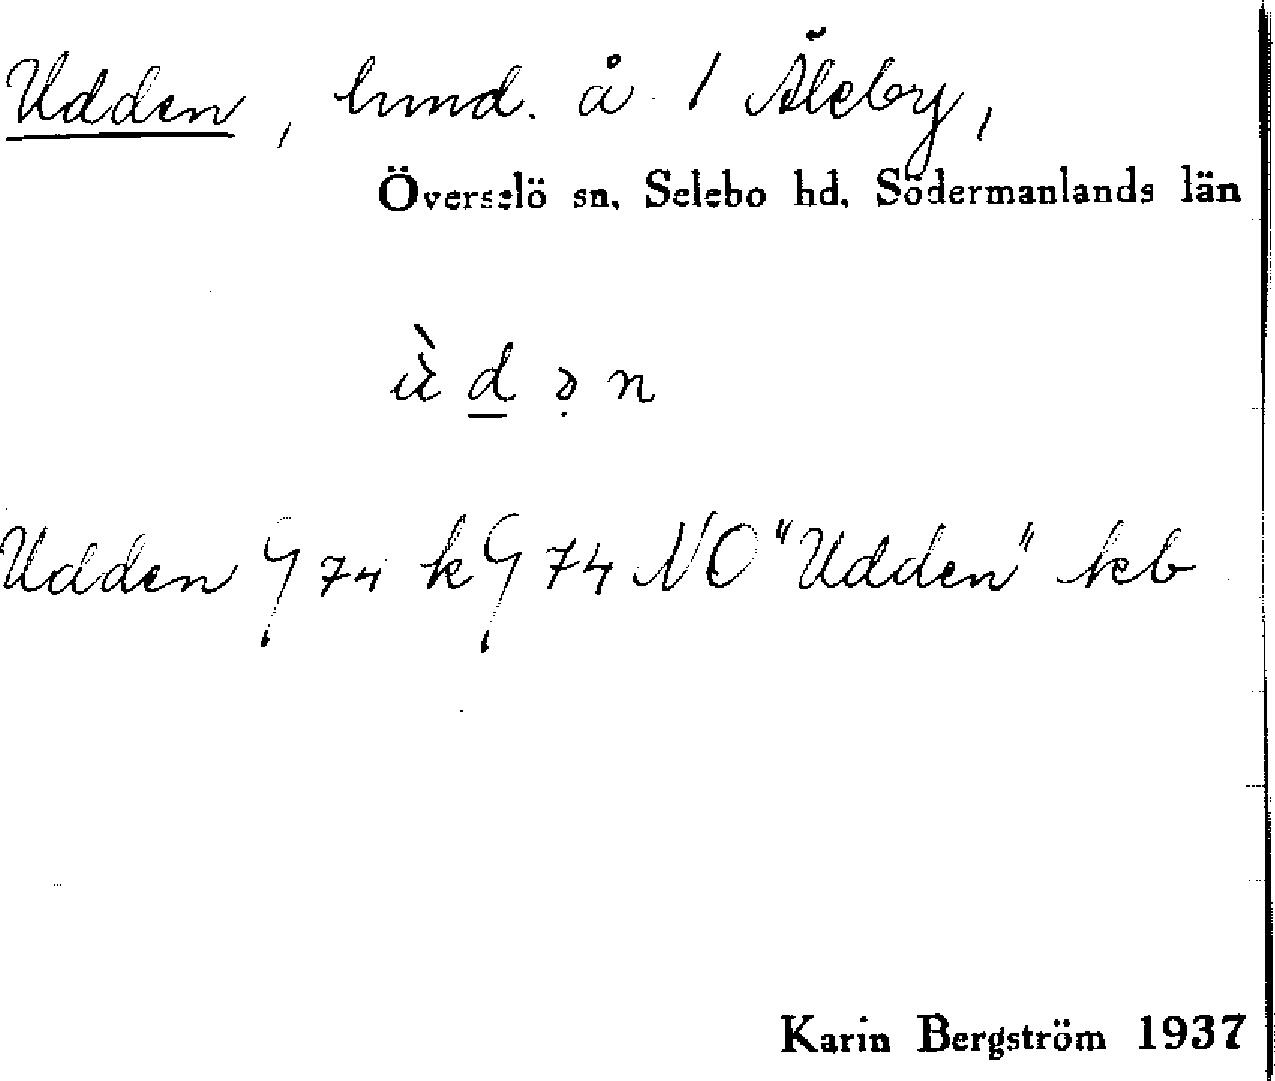 Udden, lund. å 1 Äleby,
Överselö sn, Selebo hd, Södermanlands län
ù d ə̣ n
Udden G 74 k G 74 NO "Udden" kb
Karin Bergström 1937